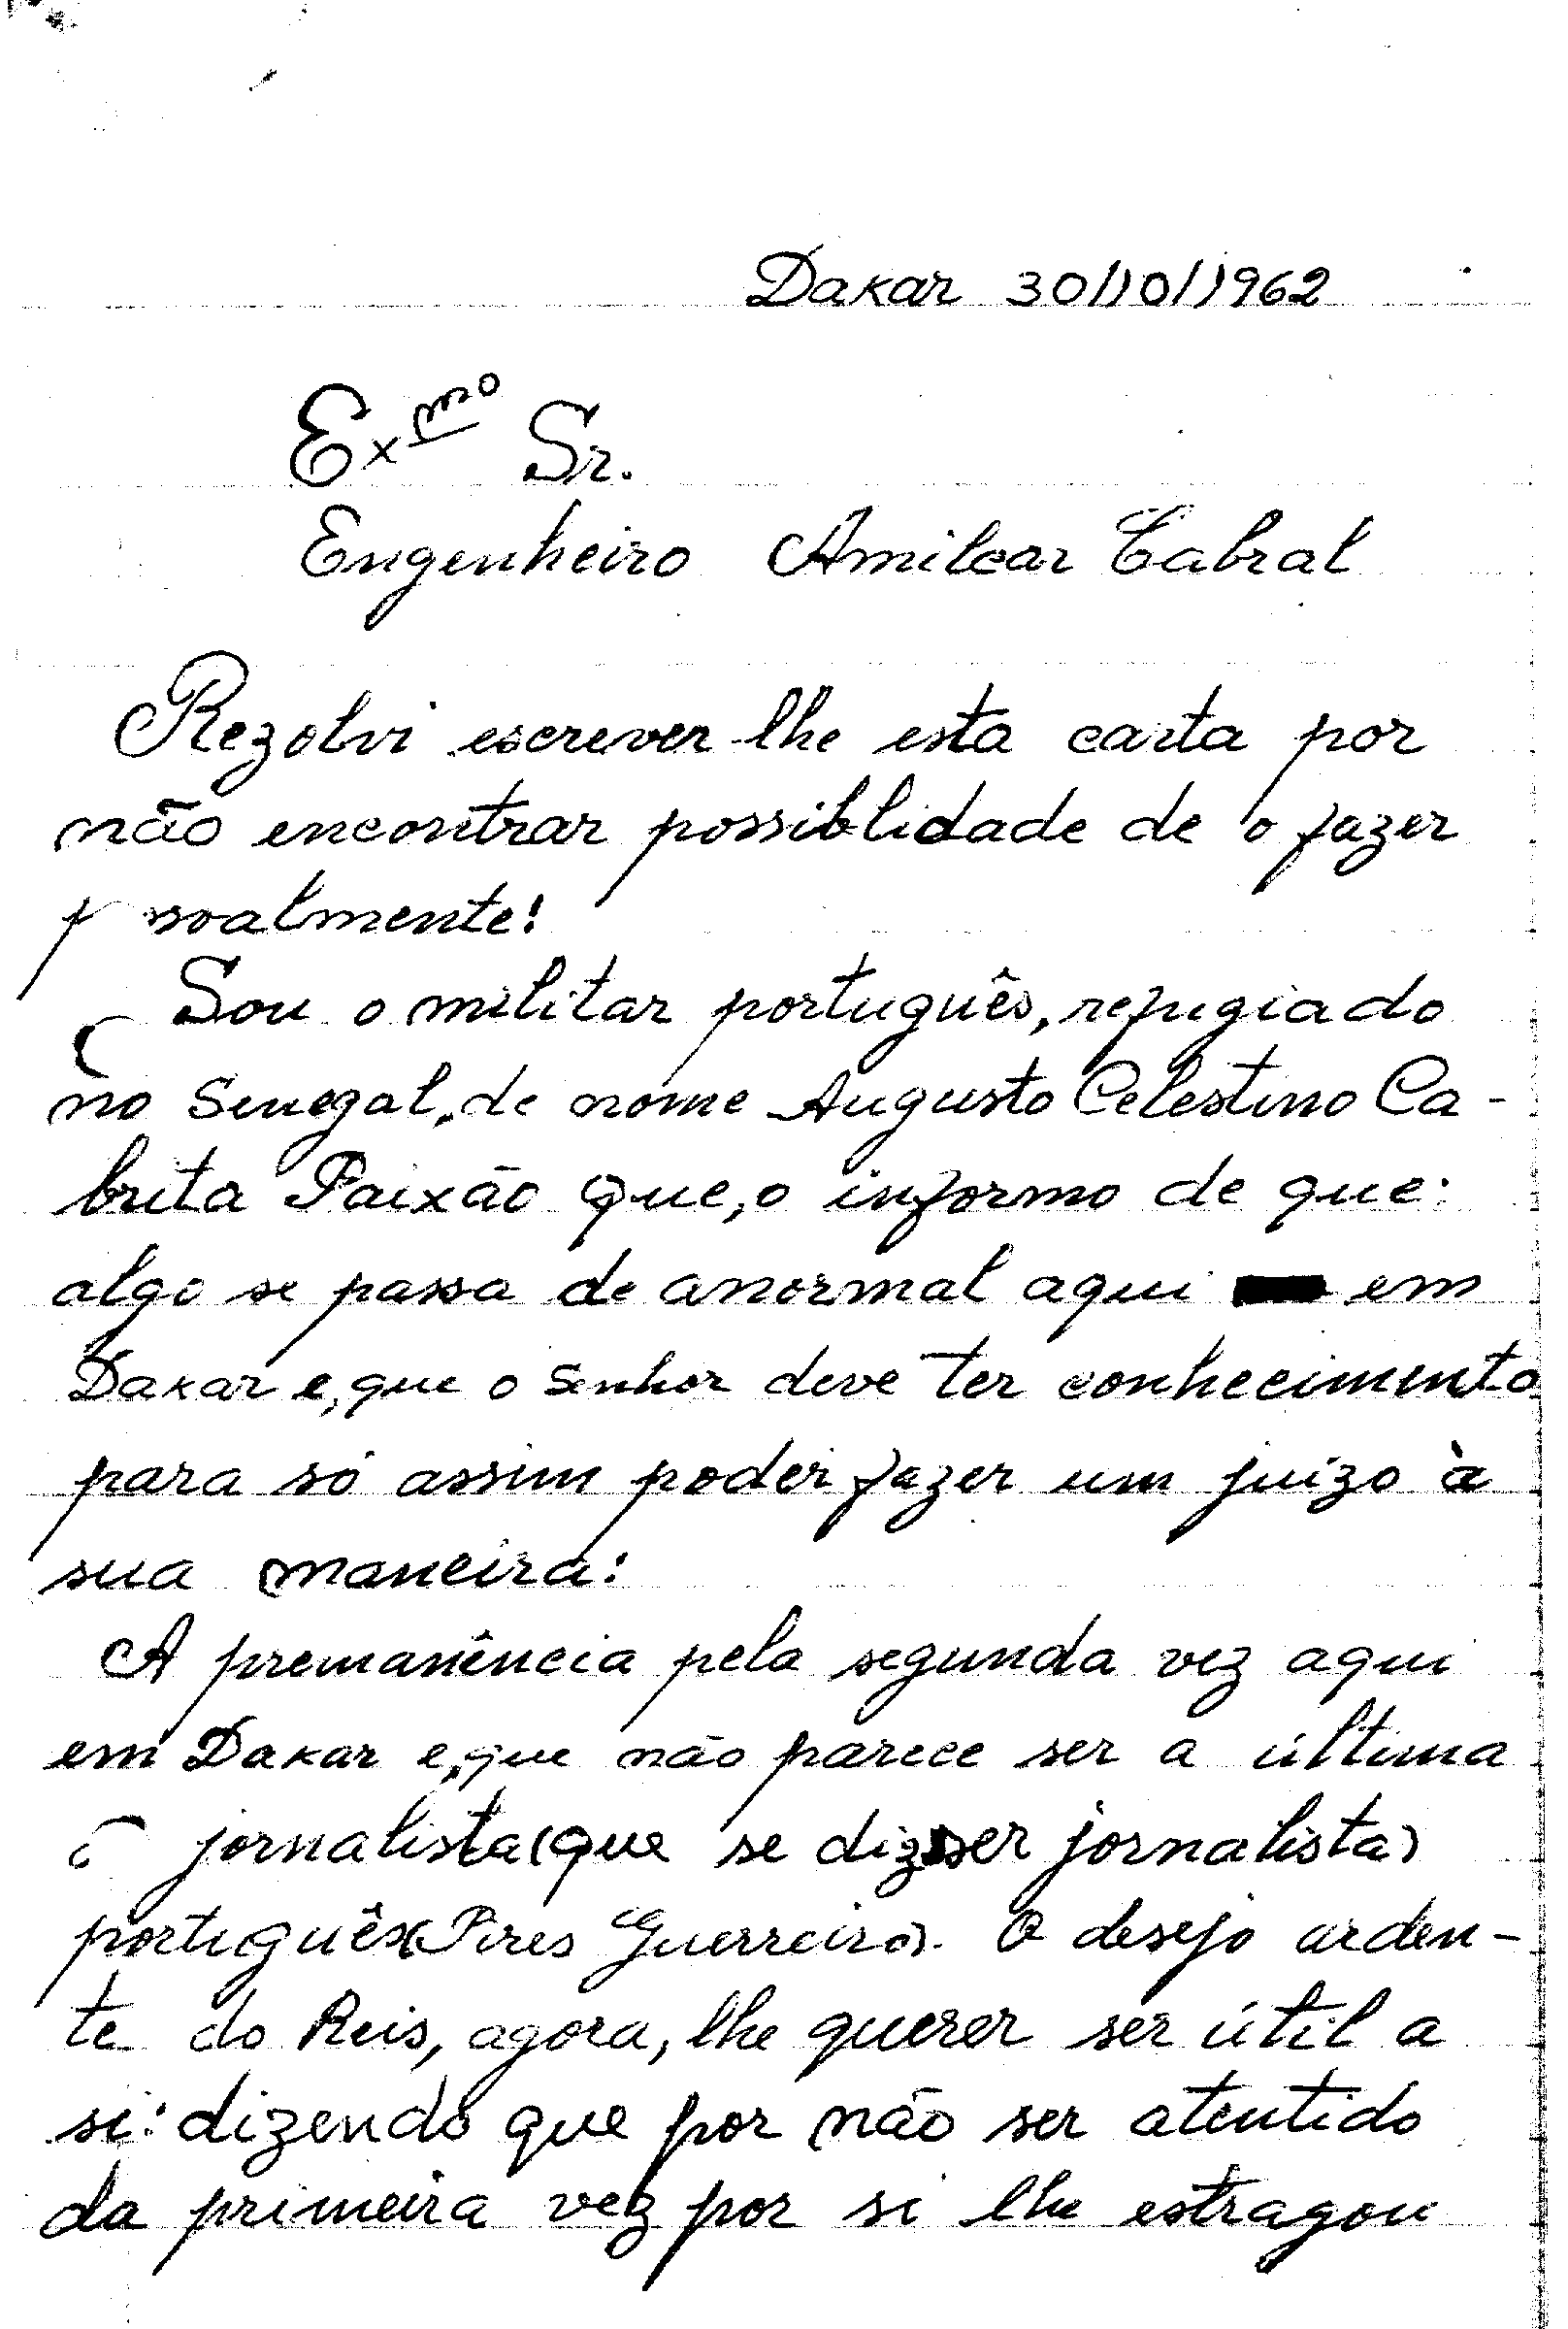 Dakar 30/10/1962
Exmo Sr.
Engenheiro Amilcar Cabral
Rezolvi escrever-lhe esta carta por
não encontrar possiblidade de o fazer
p soalmente!
Sou o militar português, refugiado
no Senegal, de nome Augusto Celestino Ca-
brita Paixão que, o informo de que:
algo se passa de anormal aqui em
Dakar e, que o senhor deve ter conhecimento
para só assim poder fazer um juízo à
sua maneira:
A premanência pela segunda vez aqui
em Dakar e, que não parece ser a última
o jornalista (que se diz ser jornalista)
português (Pires Guerreiro). O desejo arden-
te do Reis, agora, lhe querer ser útil a
si: dizendo que por não ser atentido
da primeira vez por si lhe estragou